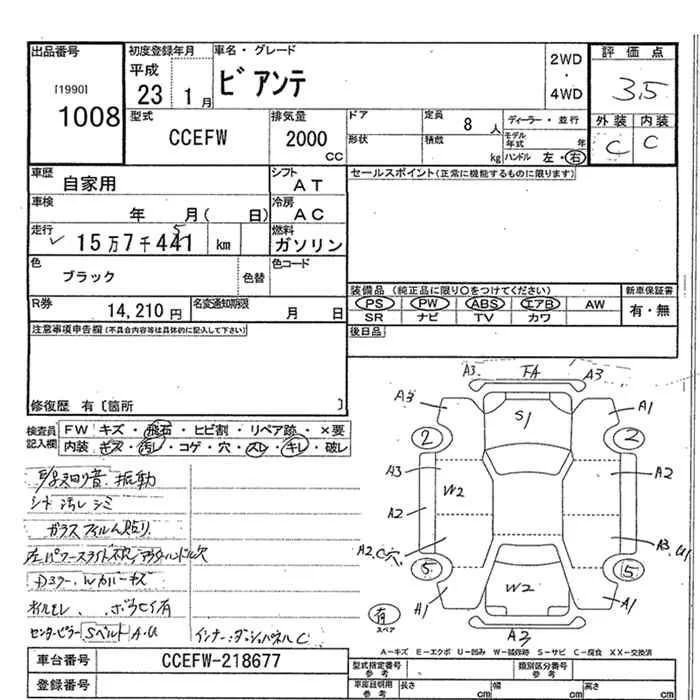 出品番号
[1990]
1008
初度登録年月
平成
23 1月
車名・グレード
ビアンテ
2WD
・
4WD
評価点
3.5
外装 内装
C C
型式
CCEFW
排気量
2000
cc
ドア
形状
定員
8人
積載
kg
ディーラー・並行
モデル年式 年
ハンドル 左・右
車歴
自家用
シフト
AT
車検
年 月( 日)
冷房
AC
走行
15万7千441 km
5
燃料
ガソリン
色
ブラック
色替
色コード
R券
14,210円
名変通知期限
月 日
セールスポイント(正常に機能するものに限ります)
装備品 (純正品に限り○をつけてください)
新車保証書
PS PW ABS エアB AW
有・無
SR ナビ TV カワ
後日品
注意事項申告欄(不具合内容等は具体的に記入して下さい)
修復歴 有〔箇所 〕
検査員記入欄
FW キズ・飛石・ヒビ割・リペア跡・×要
内装・キズ・汚レ・コゲ・穴・スレ・キレ・破レ
振動
シート汚レシミ
ガラスフィルム貼り
オイルモレ
センターピラー Sベルト A・U
C
A3 FA A3
A3 S1 A1
2 2
A3 W2 A2
A2
A2.C穴 A3.U1
5 5
W2
A1 A1
A2
有
スペア
A−キズ E−エクボ U−凹み W−補修跡 S−サビ C−腐食 XX−交換済
車台番号
CCEFW-218677
登録番号
型式指定番号
参考
類別区分番号
参考
車庫証明用
参考
長さ cm
幅 cm
高さ cm